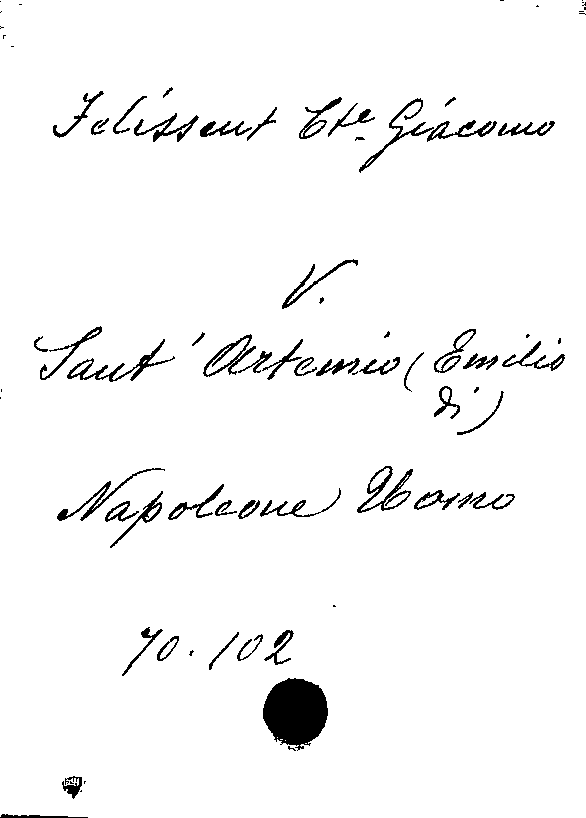 Felissent Cte Giacomo
V.
Sant' Artemio (Emilio
di)
Napoleone Uomo
70.102